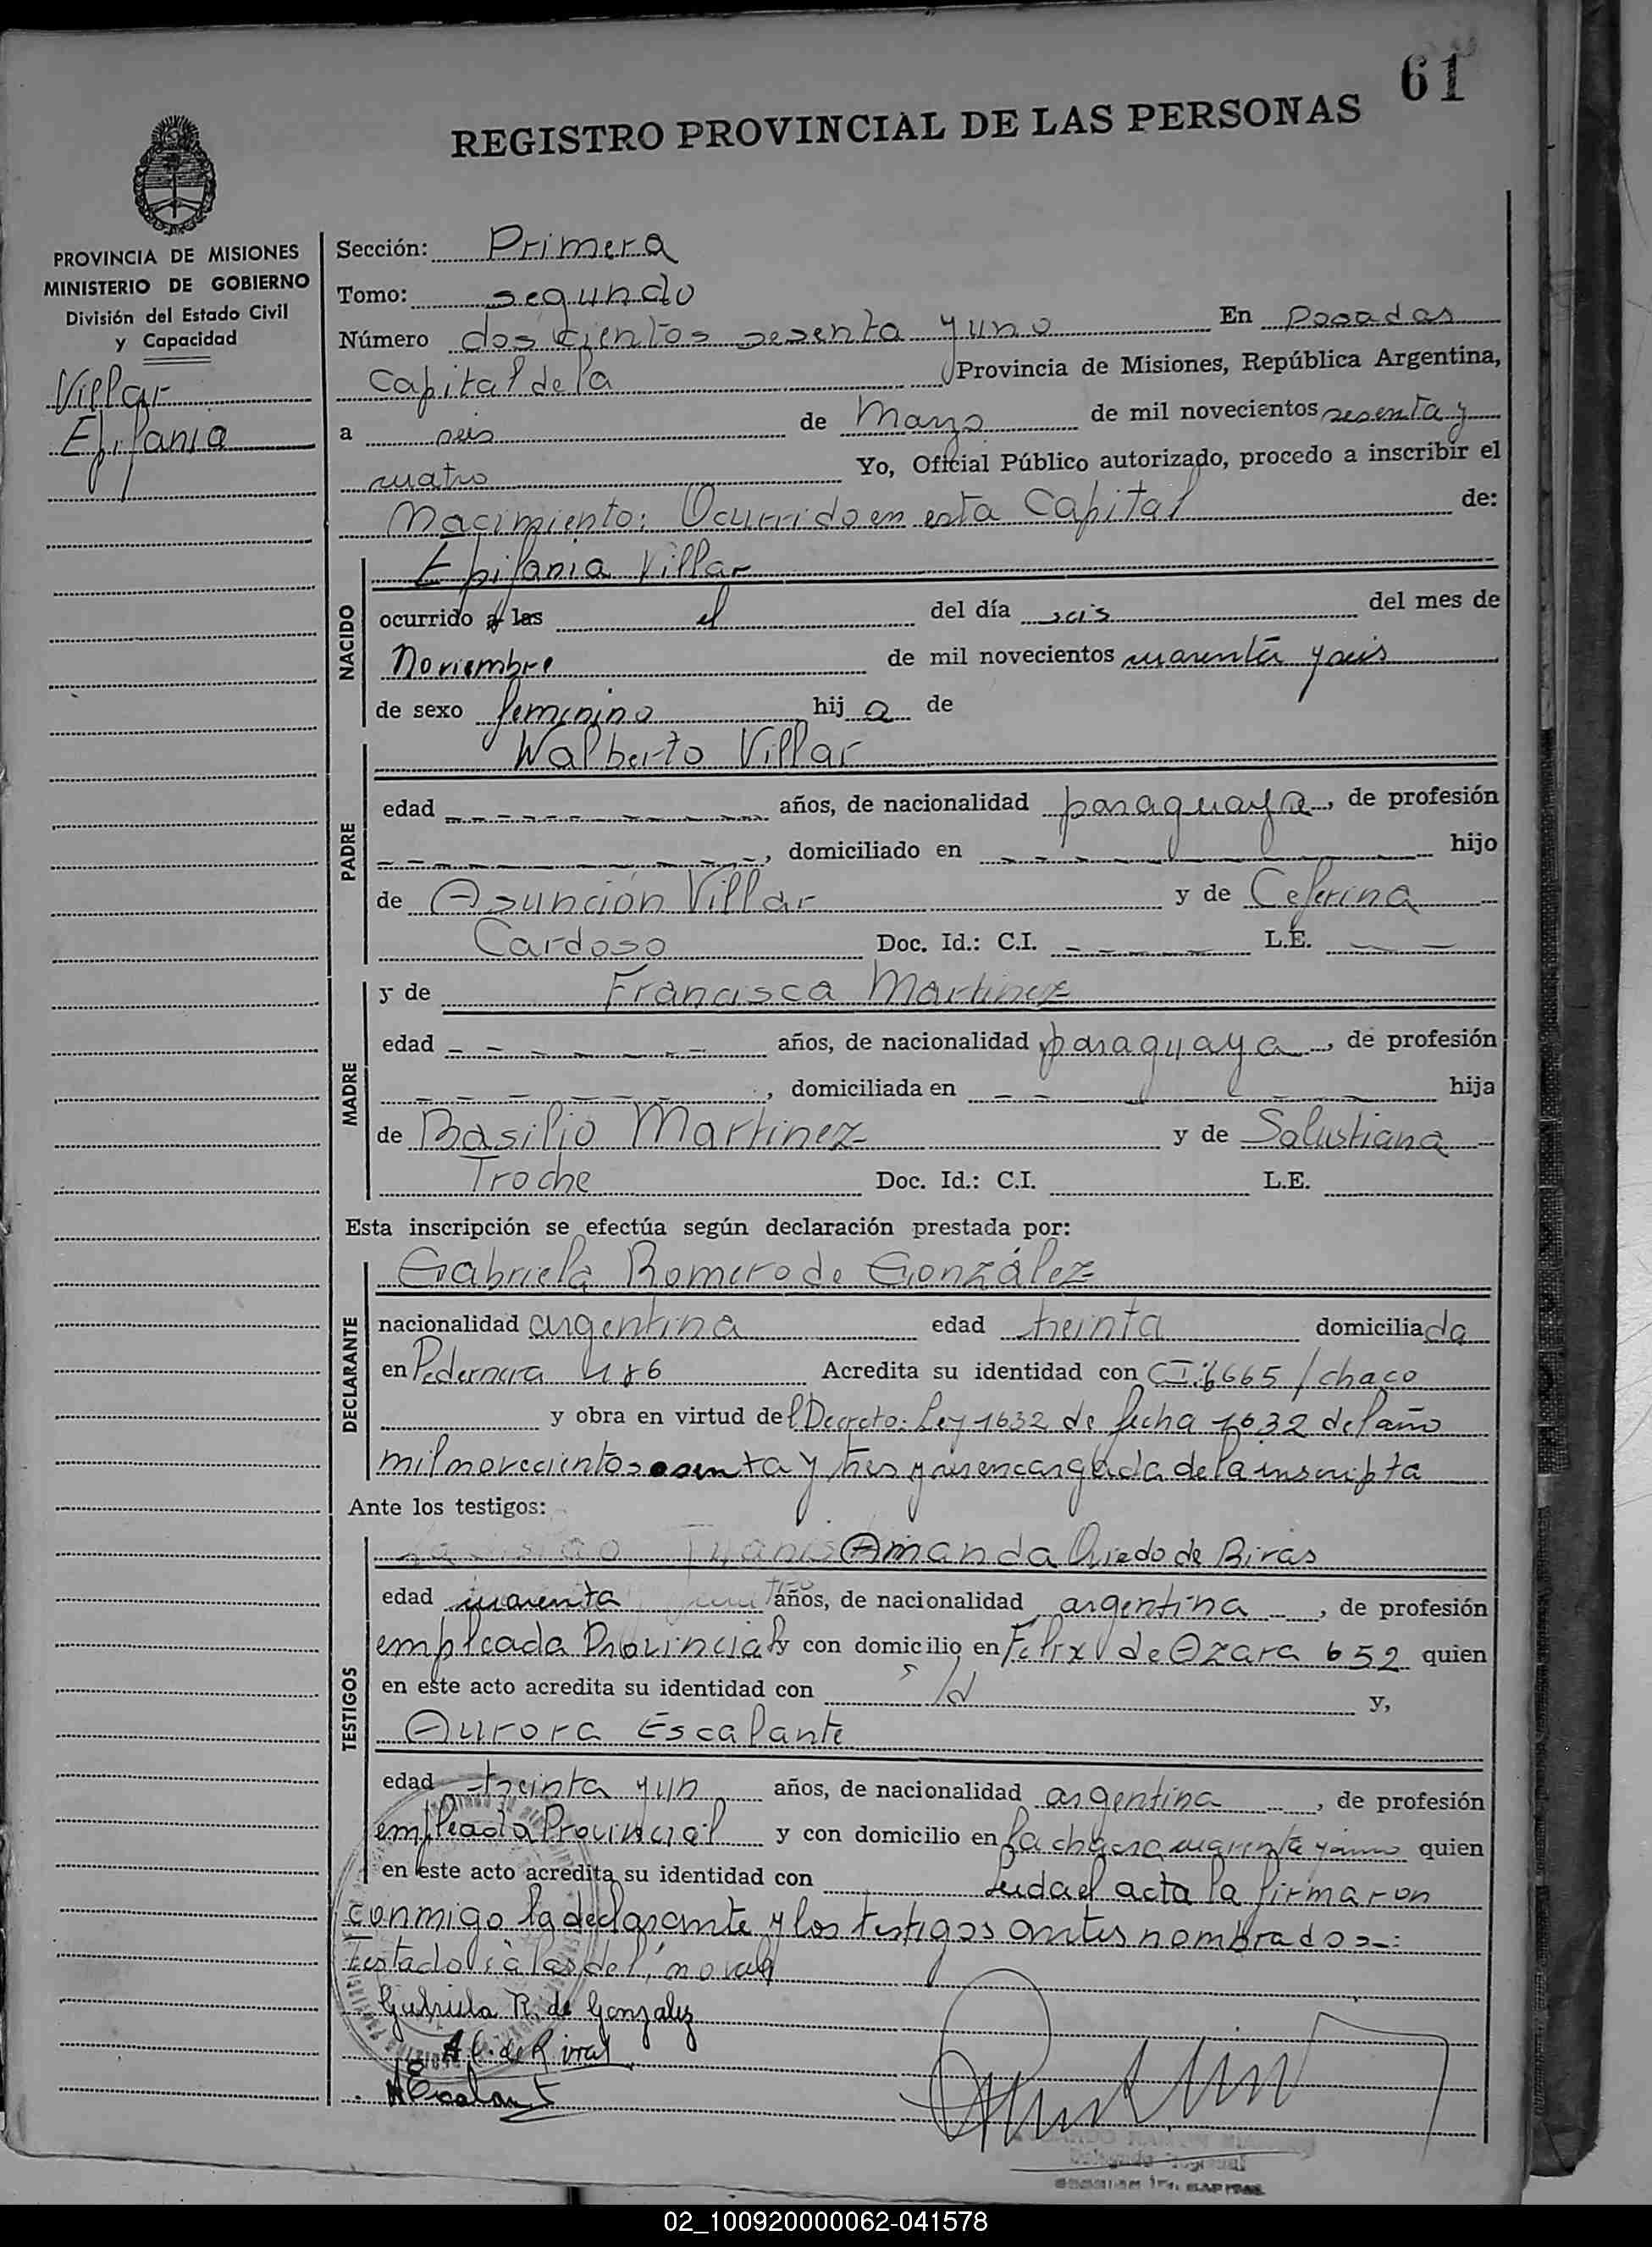 61
REGISTRO PROVINCIAL DE LAS PERSONAS
PROVINCIA DE MISIONES
MINISTERIO DE GOBIERNO
División del Estado Civil
y Capacidad
Villar
Epifania
Sección: Primera
Tomo: segundo
Número doscientos sesenta y uno En Posadas
Capital de la Provincia de Misiones, República Argentina,
a seis de Marzo de mil novecientos sesenta y
cuatro Yo, Oficial Público autorizado, procedo a inscribir el
Nacimiento: Ocurrido en esta Capital de:
NACIDO
Epifania Villar
ocurrido a las el del día seis del mes de
Noviembre de mil novecientos cuarenta y seis
de sexo femenino hija de
PADRE
Walberto Villar
edad años, de nacionalidad paraguaya, de profesión
, domiciliado en hijo
de Asunción Villar y de Ceferina
Cardoso Doc. Id.: C.I. L.E.
MADRE
y de Francisca Martinez
edad años, de nacionalidad paraguaya, de profesión
, domiciliada en hija
de Basilio Martinez y de Salustiana
Troche Doc. Id.: C.I. L.E.
Esta inscripción se efectúa según declaración prestada por:
DECLARANTE
Gabriela Romero de González
nacionalidad argentina edad treinta domiciliada
en Pedernera 1186 Acredita su identidad con C.I. 6665/chaco
y obra en virtud del Decreto: Ley 1632 de fecha 1632 del año
mil novecientos sesenta y tres y es encargada de la inscripta
Ante los testigos:
TESTIGOS
Amanda Oviedo de Rivas
edad cuarenta años, de nacionalidad argentina, de profesión
empleada Provincial y con domicilio en Felix de Azara 652 quien
en este acto acredita su identidad con y,
Aurora Escalante
edad treinta y un años, de nacionalidad argentina, de profesión
empleada Provincial y con domicilio en la chacra cuarenta y quien
en este acto acredita su identidad con Leida el acta la firmaron
conmigo la declarante y los testigos antes nombrados-:
Testado: a las del, no vale
Gabriela R. de Gonzalez
A O. de Rivas
A Escalante
02_100920000062-041578